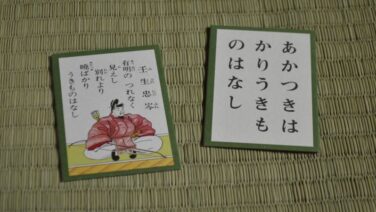 壬生忠岑
有明の つれなく
見えし
別れより
暁ばかり
うきものはなし
あかつきは
かりうきも
のはなし